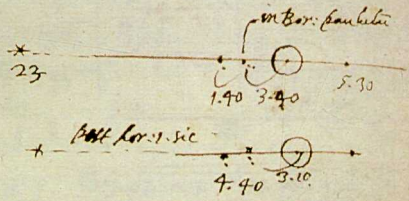 in Bor: paululu
23 1.40 3.40 5.30
Post hor: 1. sic
4. 40 3.10